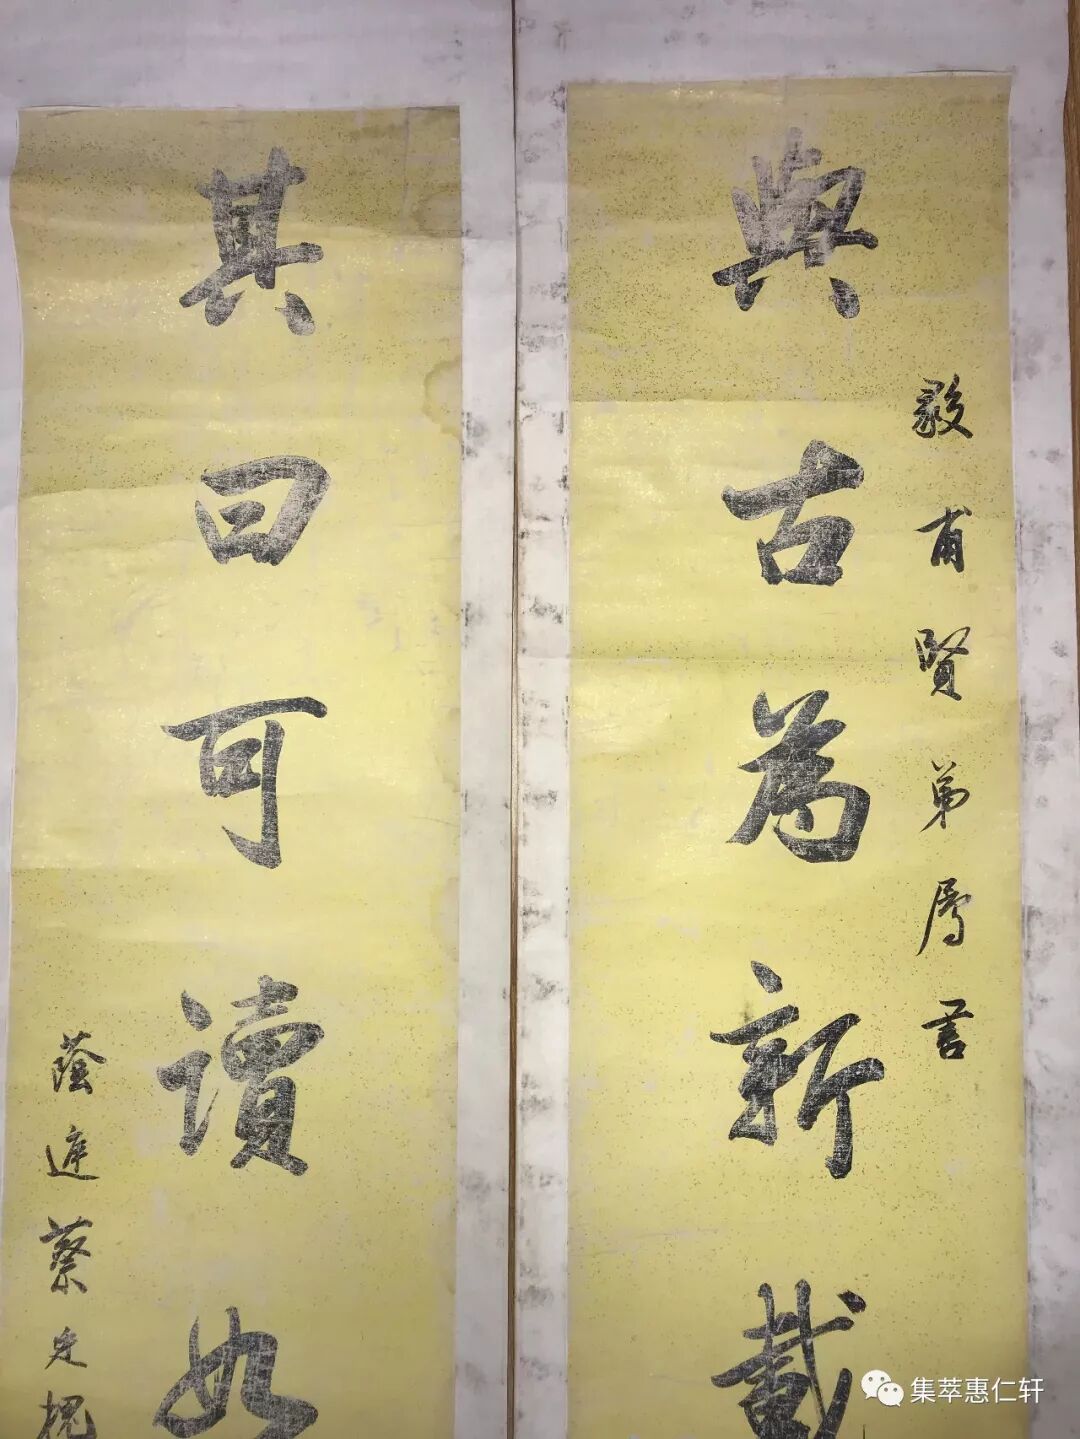 毅甫賢弟屬書
與古為新載
其曰可讀如
蔭庭蔡之槐
集萃惠仁轩